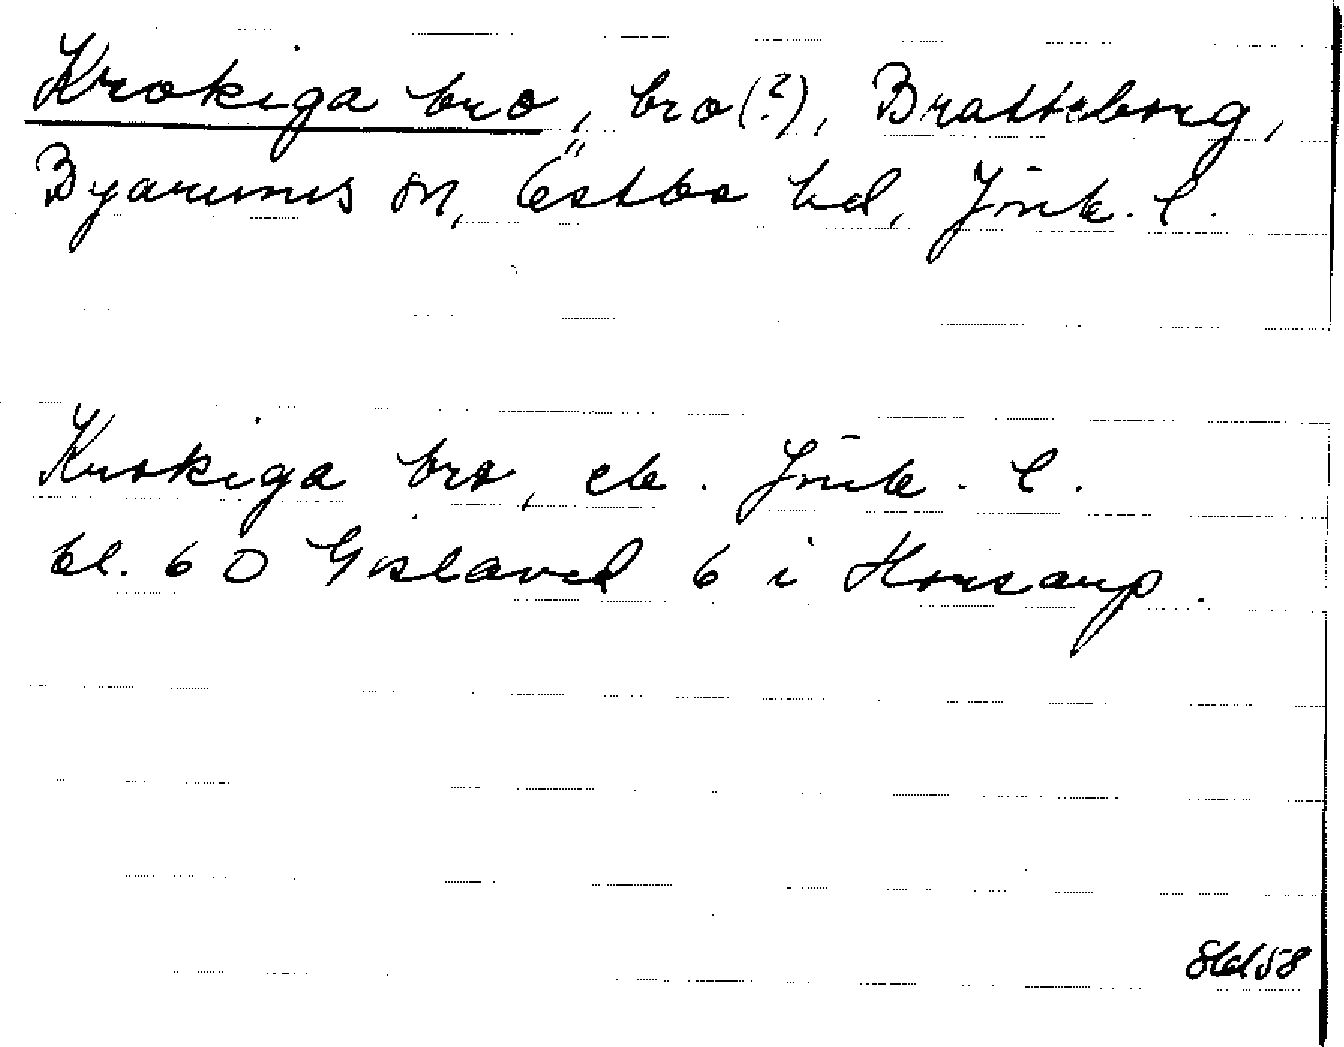 Krokiga bro, bro(?), Bratteborg,
Byarums sn, Östbo hd, Jönk. l.
Krokiga bro, ek. Jönk. l.
bl. 6 D Gislaved 6 i